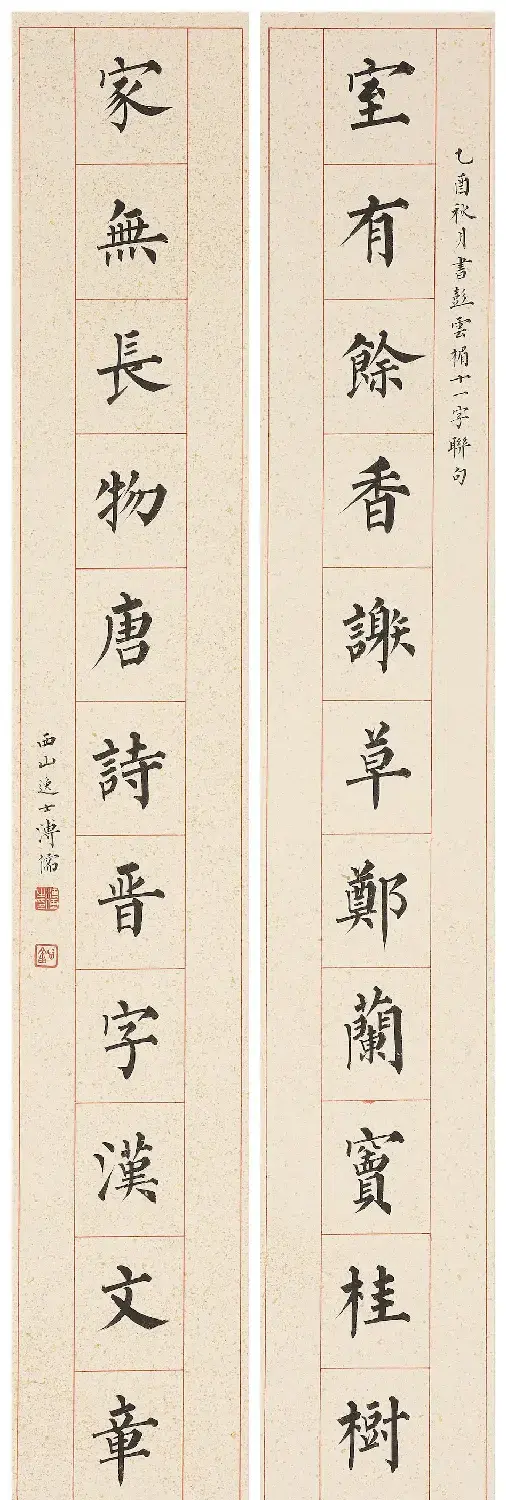 乙酉秋月書彭雲楣十一字聯句
室有餘香謝草鄭蘭竇桂樹
家無長物唐詩晋字漢文章
西山逸士溥儒